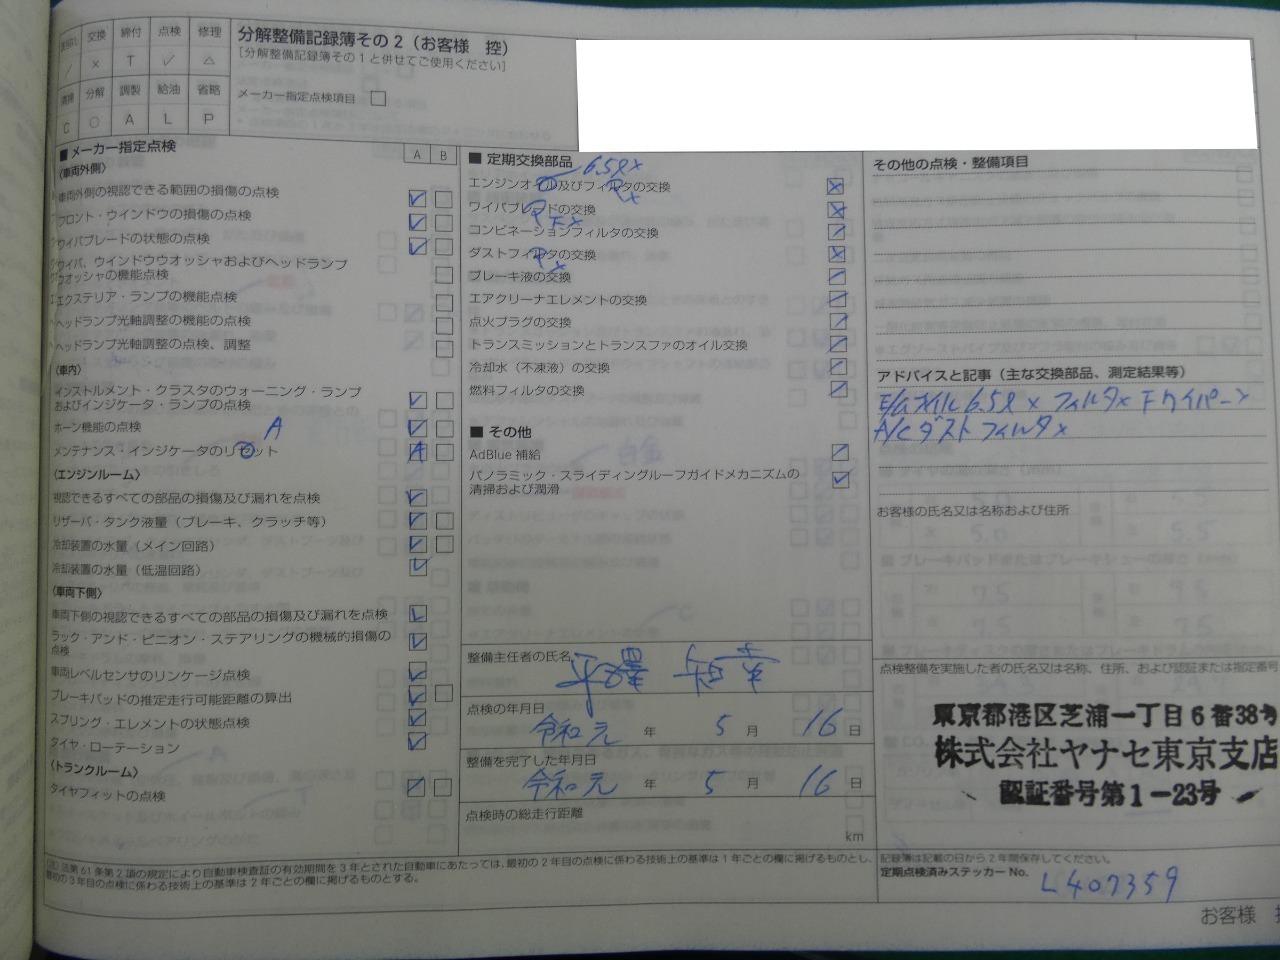 交換 締付 点検 修理
/ × T ✓ △
清掃 分解 調製 給油 省略
C ○ A L P
分解整備記録簿その2（お客様 控）
[分解整備記録簿その1と併せてご使用ください]
メーカー指定点検項目 □
■ メーカー指定点検 A B
〈車両外側〉
車両外側の視認できる範囲の損傷の点検
フロント・ウインドウの損傷の点検
ワイパブレードの状態の点検
ワイパ、ウインドウウオッシャおよびヘッドランプ
ウオッシャの機能点検
エクステリア・ランプの機能点検
ヘッドランプ光軸調整の機能の点検
ヘッドランプ光軸調整の点検、調整
〈車内〉
インストルメント・クラスタのウォーニング・ランプ
およびインジケータ・ランプの点検
ホーン機能の点検
A
メンテナンス・インジケータのリセット A
〈エンジンルーム〉
視認できるすべての部品の損傷及び漏れを点検
リザーバ・タンク液量（ブレーキ、クラッチ等）
冷却装置の水量（メイン回路）
冷却装置の水量（低温回路）
〈車両下側〉
車両下側の視認できるすべての部品の損傷及び漏れを点検
ラック・アンド・ピニオン・ステアリングの機械的損傷の
点検
車両レベルセンサのリンケージ点検
ブレーキパッドの推定走行可能距離の算出
スプリング・エレメントの状態点検
タイヤ・ローテーション
〈トランクルーム〉
タイヤフィットの点検
■ 定期交換部品
6.5ℓ×
エンジンオイル及びフィルタの交換
ワイパブレードの交換
F×
コンビネーションフィルタの交換
ダストフィルタの交換
ブレーキ液の交換
エアクリーナエレメントの交換
点火プラグの交換
トランスミッションとトランスファのオイル交換
冷却水（不凍液）の交換
燃料フィルタの交換
■ その他
AdBlue 補給
パノラミック・スライディングルーフガイドメカニズムの
清掃および潤滑
整備主任者の氏名
平澤
点検の年月日
令和元 年 5 月 16 日
整備を完了した年月日
令和元 年 5 月 16 日
点検時の総走行距離
km
その他の点検・整備項目
アドバイスと記事（主な交換部品、測定結果等）
E/Gオイル 6.5ℓ× フィルタ× Fワイパー
A/Cダストフィルタ×
お客様の氏名又は名称および住所
点検整備を実施した者の氏名又は名称、住所、および認証または指定番号
東京都港区芝浦一丁目6番38号
株式会社ヤナセ東京支店
認証番号第1－23号
(注) 法第61条第2項の規定により自動車検査証の有効期間を3年とされた自動車にあたっては、最初の2年目の点検に係わる技術上の基準は1年ごとの欄に掲げるものとし、
最初の3年目の点検に係わる技術上の基準は2年ごとの欄に掲げるものとする。
記録簿は記載の日から2年間保存してください。
定期点検済みステッカー No. L407359
お客様